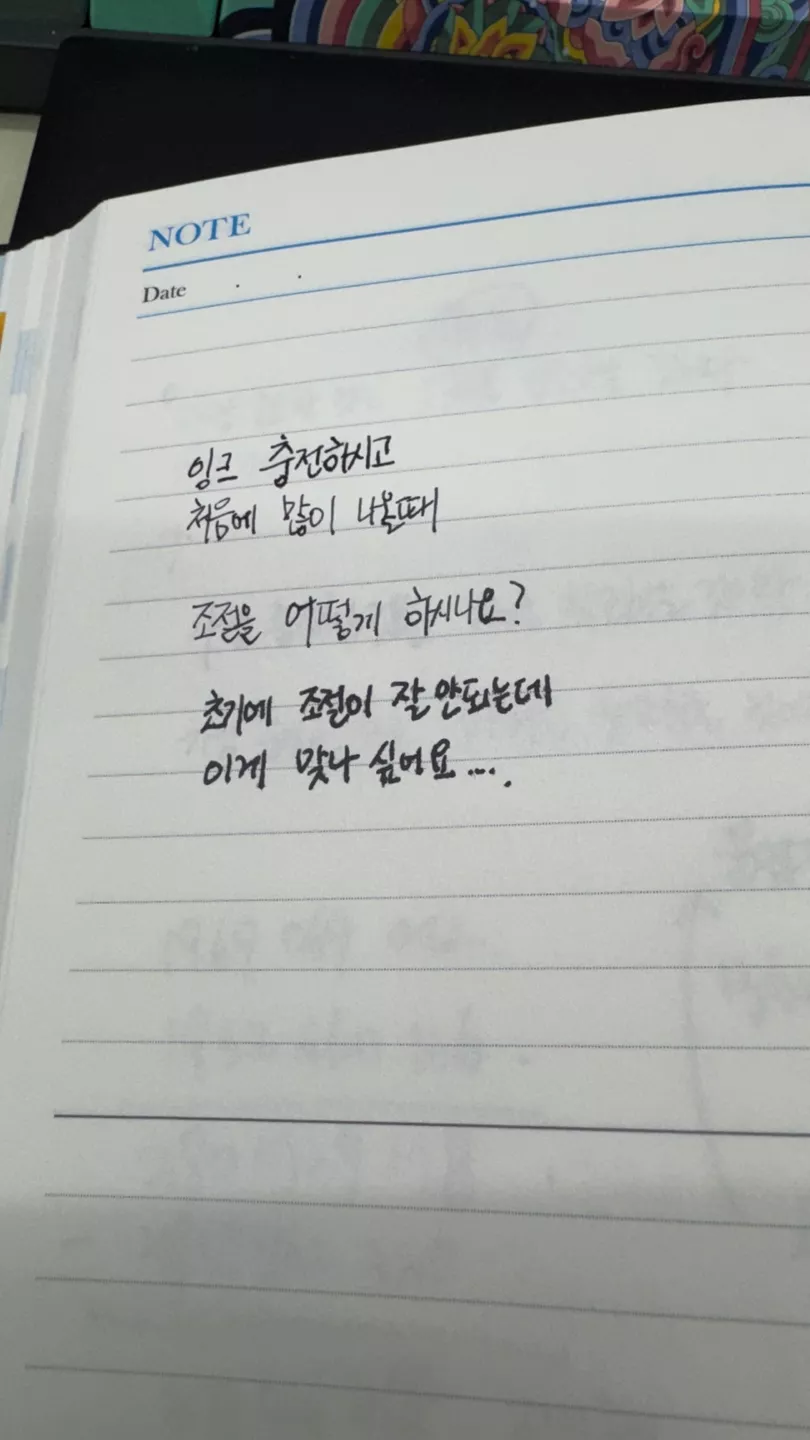 NOTE
Date . .
잉크 충전하시고
처음에 많이 나올때
조절을 어떻게 하시나요?
초기에 조절이 잘 안되는데
이게 맞나 싶어요....